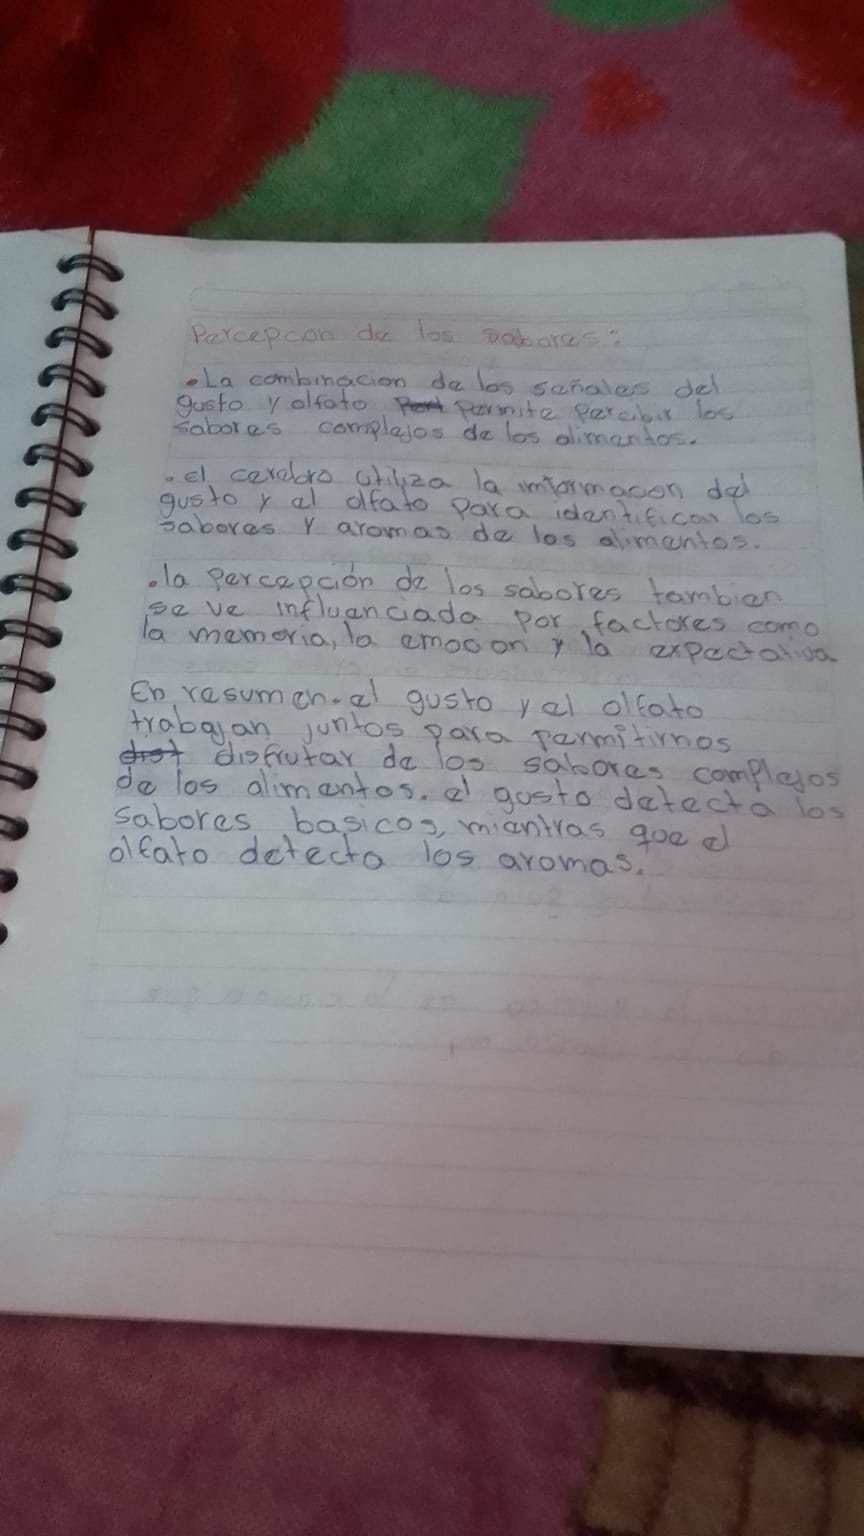 Percepcon de los sabores:
• La combinacion de los señales del
gusto y olfato permite percibir los
sabores complejos de los alimentos.
• el cerebro utiliza la informacon del
gusto y el olfato para identificar los
sabores y aromas de los alimentos.
• la percepción de los sabores tambien
se ve influenciada por factores como
la memoria, la emocion y la expectativa
En resumen. el gusto y el olfato
trabajan juntos para permitirnos
disfrutar de los sabores complejos
de los alimentos. el gusto detecta los
sabores basicos, mientras que el
olfato detecta los aromas.